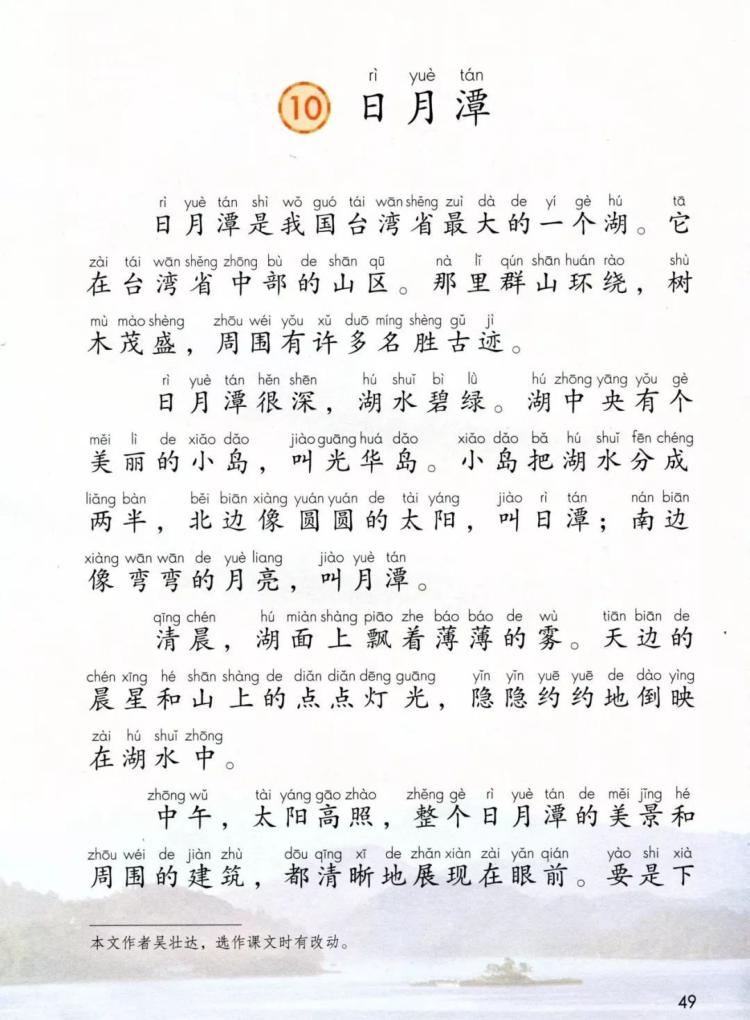 rì yuè tán
10 日月潭
rì yuè tán shì wǒ guó tái wān shěng zuì dà de yí gè hú tā
日月潭是我国台湾省最大的一个湖。它
zài tái wān shěng zhōng bù de shān qū nà lǐ qún shān huán rào shù
在台湾省中部的山区。那里群山环绕，树
mù mào shèng zhōu wéi yǒu xǔ duō míng shèng gǔ jì
木茂盛，周围有许多名胜古迹。
rì yuè tán hěn shēn hú shuǐ bì lǜ hú zhōng yāng yǒu gè
日月潭很深，湖水碧绿。湖中央有个
měi lì de xiǎo dǎo jiào guāng huá dǎo xiǎo dǎo bǎ hú shuǐ fēn chéng
美丽的小岛，叫光华岛。小岛把湖水分成
liǎng bàn běi biān xiàng yuán yuán de tài yáng jiào rì tán nán biān
两半，北边像圆圆的太阳，叫日潭；南边
xiàng wān wān de yuè liang jiào yuè tán
像弯弯的月亮，叫月潭。
qīng chén hú miàn shàng piāo zhe báo báo de wù tiān biān de
清晨，湖面上飘着薄薄的雾。天边的
chén xīng hé shān shàng de diǎn diǎn dēng guāng yǐn yǐn yuē yuē de dào yìng
晨星和山上的点点灯光，隐隐约约地倒映
zài hú shuǐ zhōng
在湖水中。
zhōng wǔ tài yáng gāo zhào zhěng gè rì yuè tán de měi jǐng hé
中午，太阳高照，整个日月潭的美景和
zhōu wéi de jiàn zhù dōu qīng xī de zhǎn xiàn zài yǎn qián yào shi xià
周围的建筑，都清晰地展现在眼前。要是下
本文作者吴壮达，选作课文时有改动。
49